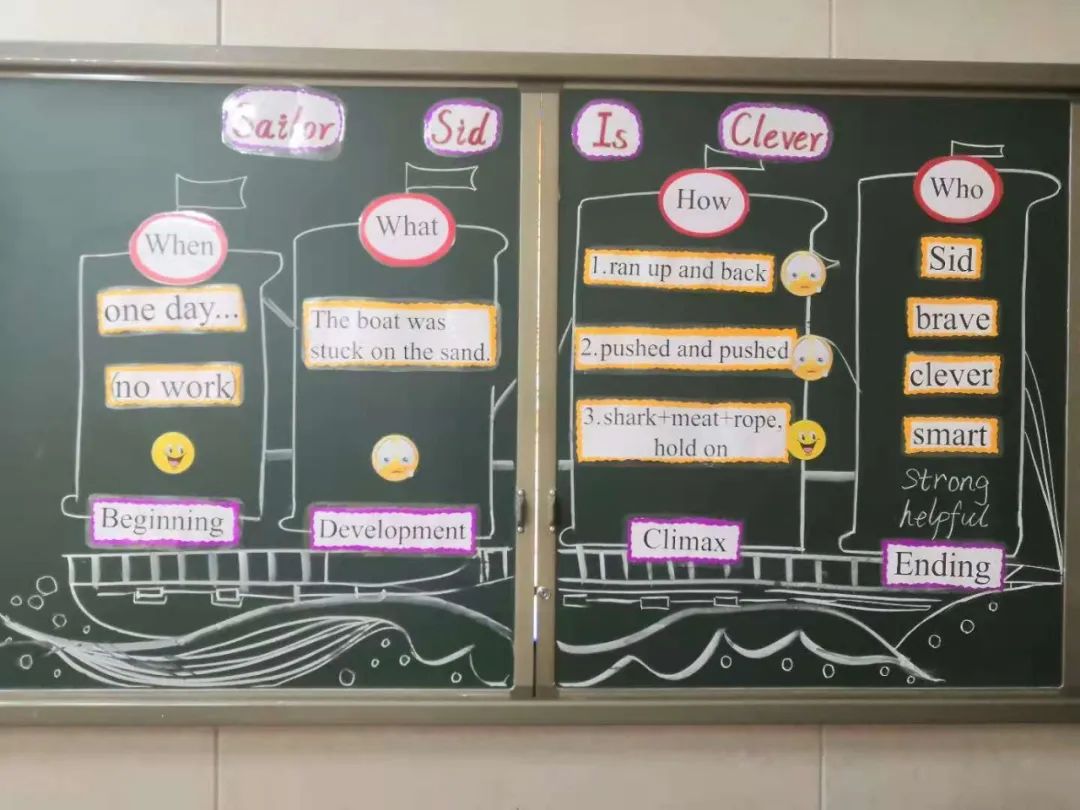 Sailor Sid Is Clever
When
one day...
no work
Beginning
What
The boat was
stuck on the sand.
Development
How
1.ran up and back
2.pushed and pushed
3.shark+meat+rope,
hold on
Climax
Who
Sid
brave
clever
smart
Strong
helpful
Ending